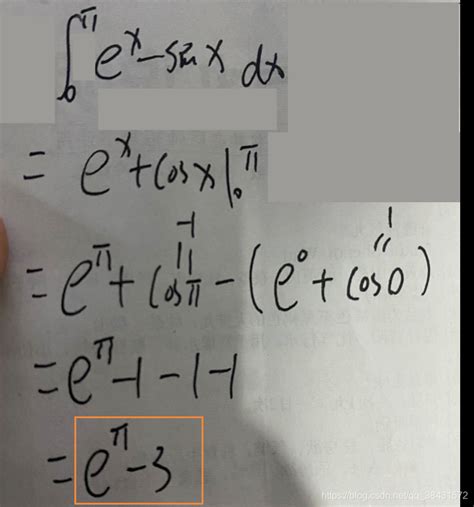 ∫₀^π e^x - sin x dx
= e^x + cos x |₀^π
-1 1
= e^π + cos π - (e^0 + cos 0)
= e^π - 1 - 1 - 1
= e^π - 3
https://blog.csdn.net/qq_38431572